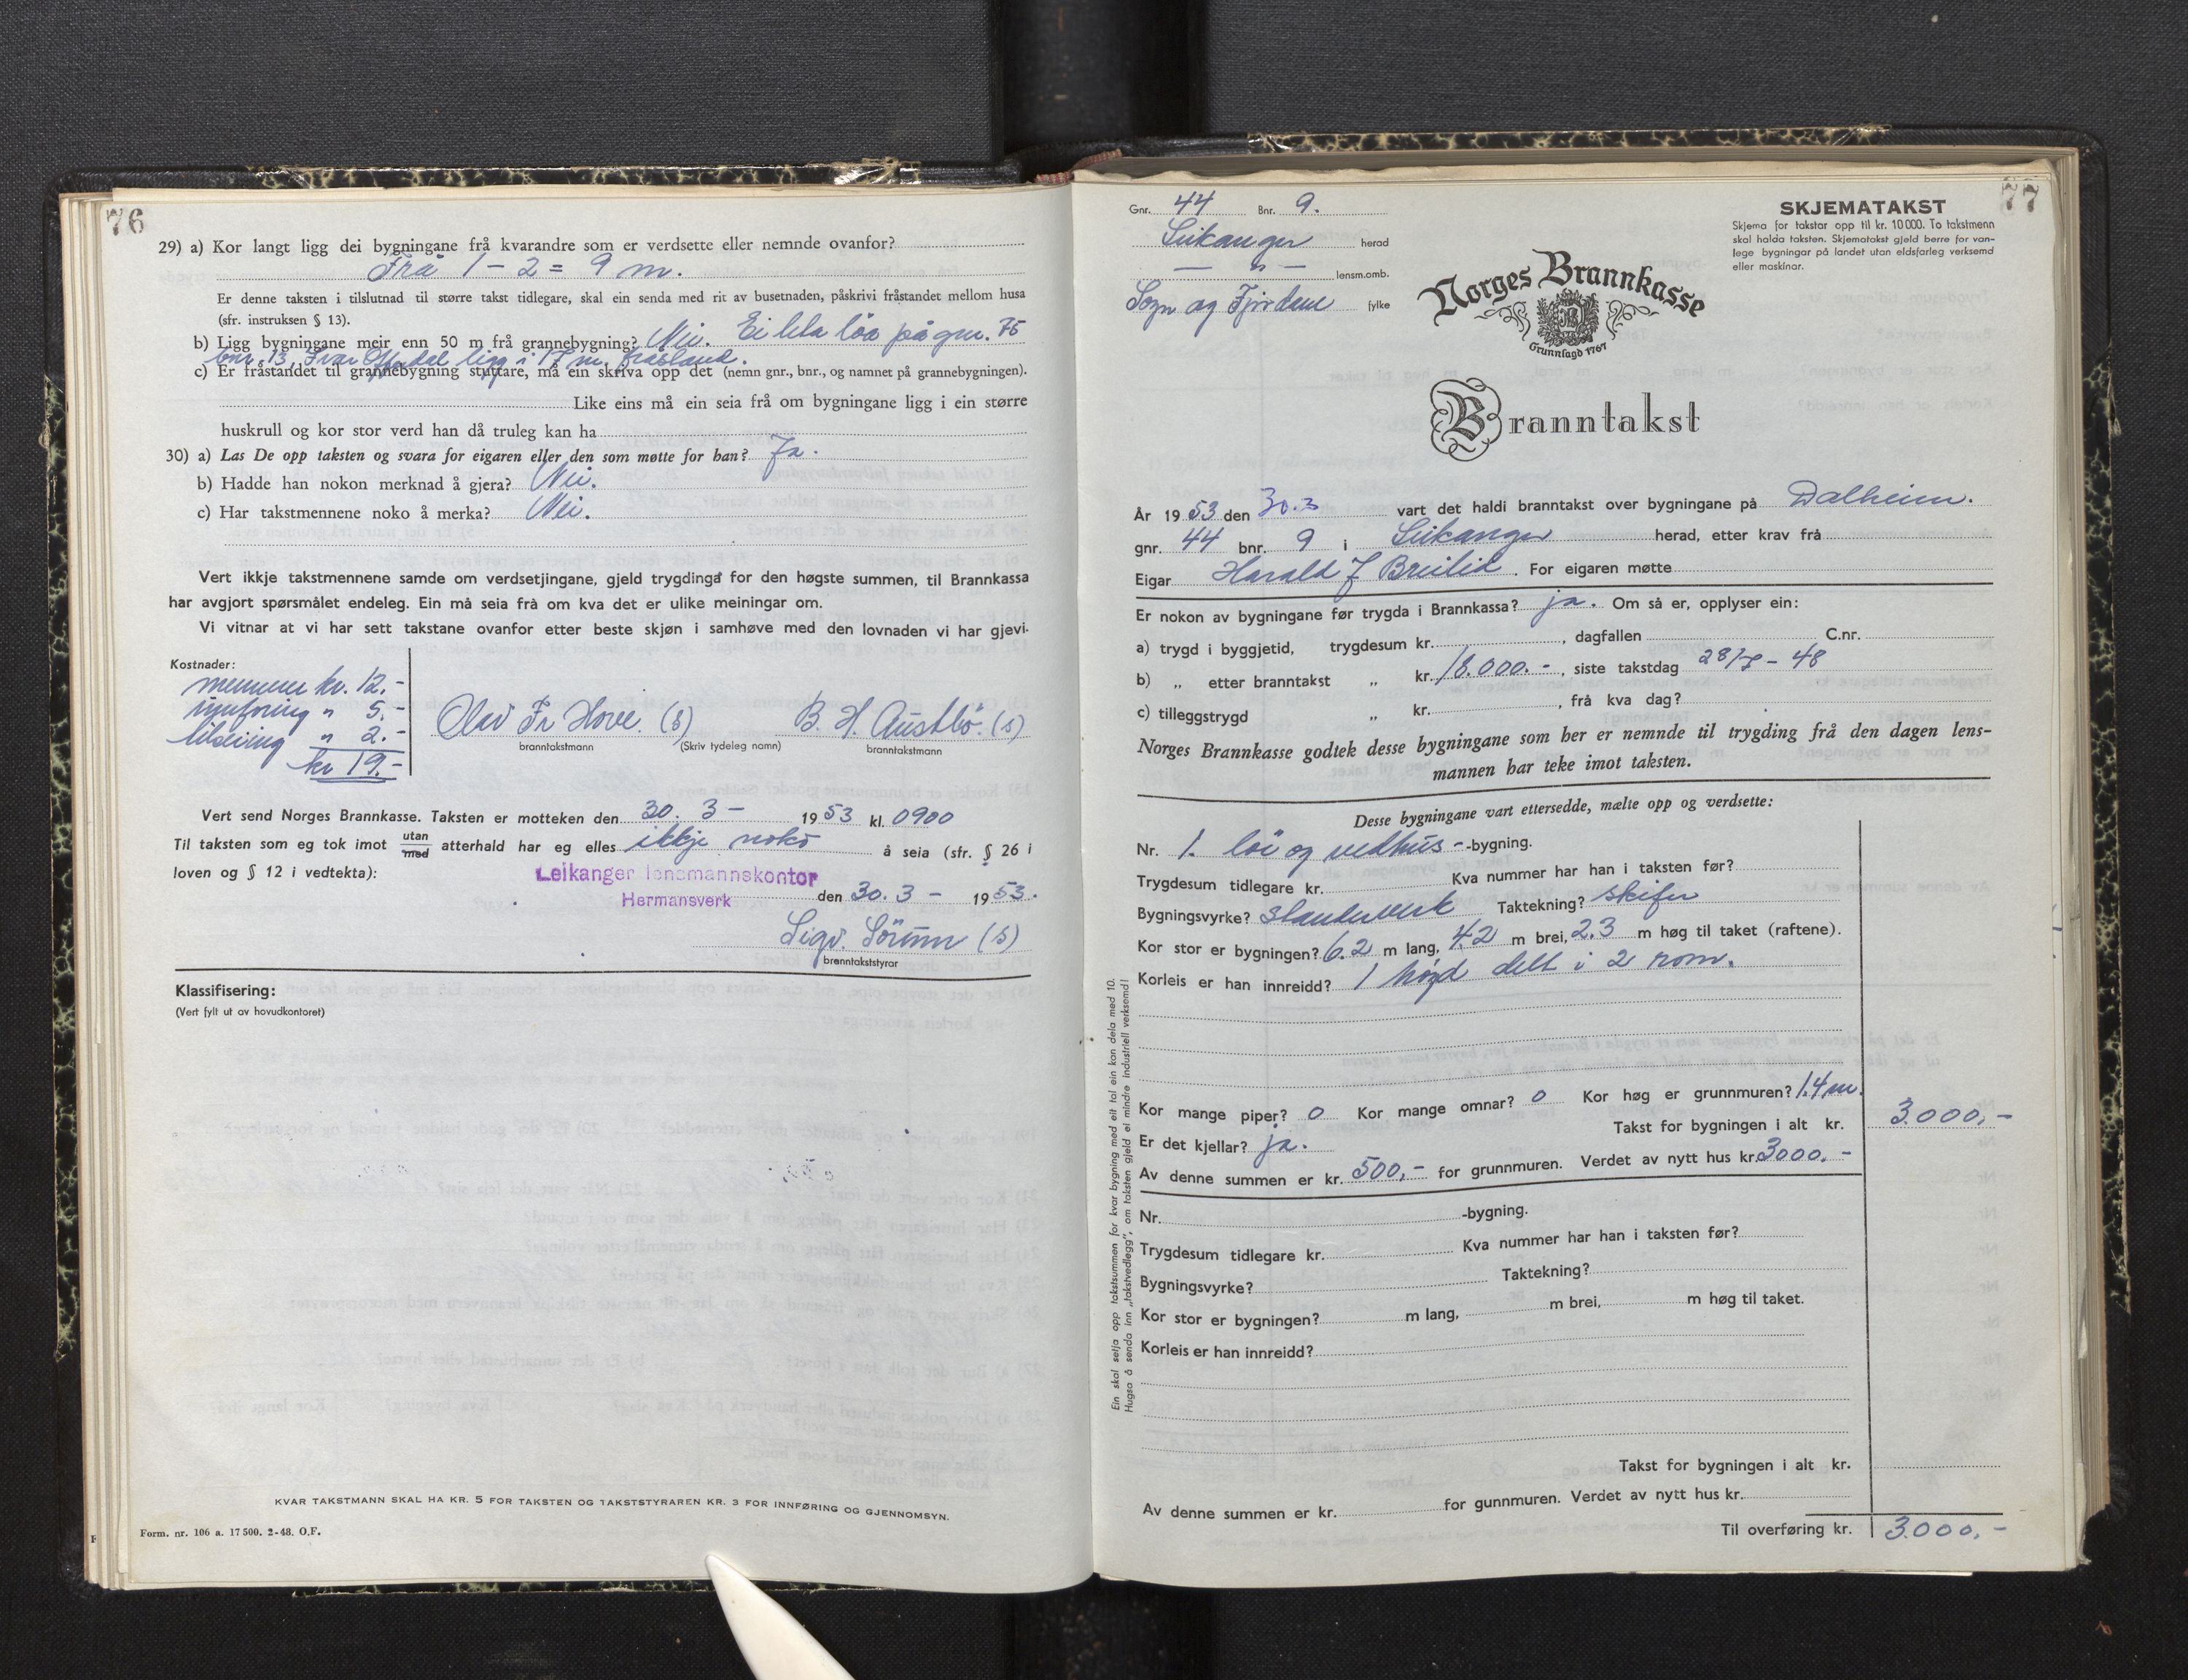 76
29) a) Kor langt ligg dei bygningane frå kvarandre som er verdsette eller nemnde ovanfor?
Frå 1 - 2 = 9 m.
Er denne taksten i tilslutnad til større takst tidlegare, skal ein senda med rit av busetnaden, påskrivi fråstandet mellom husa
(sfr. instruksen § 13).
b) Ligg bygningane meir enn 50 m frå grannebygning? Nei. Ei lita löa på gnr. 75
bnr. 13, Ivar ligg i 17 m. fråstand.
c) Er fråstandet til grannebygning stuttare, må ein skriva opp det (nemn gnr., bnr., og namnet på grannebygningen).
Like eins må ein seia frå om bygningane ligg i ein større
huskrull og kor stor verd han då truleg kan ha
30) a) Las De opp taksten og svara for eigaren eller den som møtte for han? Ja.
b) Hadde han nokon merknad å gjera? Nei.
c) Har takstmennene noko å merka? Nei.
Vert ikkje takstmennene samde om verdsetjingane, gjeld trygdinga for den høgste summen, til Brannkassa
har avgjort spørsmålet endeleg. Ein må seia frå om kva det er ulike meiningar om.
Vi vitnar at vi har sett takstane ovanfor etter beste skjøn i samhøve med den lovnaden vi har gjevi.
Kostnader:
mennene kr. 12.-
innföring " 5.-
tilseing " 2.-
kr 19.-
Olav Fr Hove. (s) B. H. Austbö. (s)
branntakstmann (Skriv tydeleg namn) branntakstmann
Vert send Norges Brannkasse. Taksten er motteken den 30. 3 - 1953 kl. 0900
Til taksten som eg tok imot utan/med atterhald har eg elles ikkje noko å seia (sfr. § 26 i
loven og § 12 i vedtekta):
Leikanger lensmannskontor
Hermansverk den 30. 3 - 1953.
Sigv. Sörum (s)
branntakststyrar
Klassifisering:
(Vert fylt ut av hovudkontoret)
KVAR TAKSTMANN SKAL HA KR. 5 FOR TAKSTEN OG TAKSTSTYRAREN KR. 3 FOR INNFØRING OG GJENNOMSYN.
Form. nr. 106 a. 17 500. 2-48. O.F.
77
Gnr. 44 Bnr. 9.
Leikanger herad
— " — lensm.omb.
Sogn og Fjordane fylke
SKJEMATAKST
Skjema for takstar opp til kr. 10 000. To takstmenn
skal halda taksten. Skjematakst gjeld berre for van-
lege bygningar på landet utan eldsfarleg verksemd
eller maskinar.
Norges Brannkasse
Grunnlagd 1767
Branntakst
År 1953 den 30.3 vart det haldi branntakst over bygningane på Dalheim.
gnr. 44 bnr. 9 i Leikanger herad, etter krav frå
Eigar Harald J Breilid. For eigaren møtte
Er nokon av bygningane før trygda i Brannkassa? ja. Om så er, opplyser ein:
a) trygd i byggjetid, trygdesum kr. , dagfallen C.nr.
b) „ etter branntakst „ kr. 18.000.- , siste takstdag 28/7 - 48
c) tilleggstrygd „ kr. , frå kva dag?
Norges Brannkasse godtek desse bygningane som her er nemnde til trygding frå den dagen lens-
mannen har teke imot taksten.
Desse bygningane vart ettersedde, mælte opp og verdsette:
Nr. 1. löe og vedhus - -bygning.
Trygdesum tidlegare kr. Kva nummer har han i taksten før?
Bygningsvyrke? Standerverk Taktekning? skifer
Kor stor er bygningen? 6.2 m lang, 4.2 m brei, 2.3 m høg til taket (raftene).
Korleis er han innreidd? 1 högd delt i 2 rom.
Kor mange piper? 0 Kor mange omnar? 0 Kor høg er grunnmuren? 1.4 m.
Er det kjellar? ja. Takst for bygningen i alt kr. 3.000,-
Av denne summen er kr. 500,- for grunnmuren. Verdet av nytt hus kr. 3000.-
Nr. -bygning.
Trygdesum tidlegare kr. Kva nummer har han i taksten før?
Bygningsvyrke? Taktekning?
Kor stor er bygningen? m lang, m brei, m høg til taket.
Korleis er han innreidd?
Takst for bygningen i alt kr.
Av denne summen er kr. for gunnmuren. Verdet av nytt hus kr.
Til overføring kr. 3.000,-
Ein skal setja opp takstsummen for kvar bygning med eit tal ein kan dela med 10.
Hugsa å senda inn „takstvedlegg", om taksten gjeld ei mindre industriell verksemd!